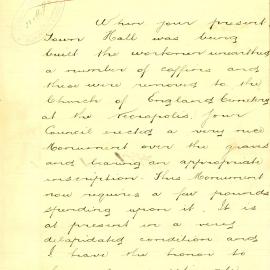 When your present
Town Hall was being
built the workmen unearthed
a number of coffins and
these were removed to the
Church of England Cemetery
at the Necropolis. Your
Council erected a very nice
Monument over the graves
and bearing an appropriate
inscription. This Monument
now requires a few pounds
spending upon it. It is
at present in a very
delapidated condition and
I have the honor to